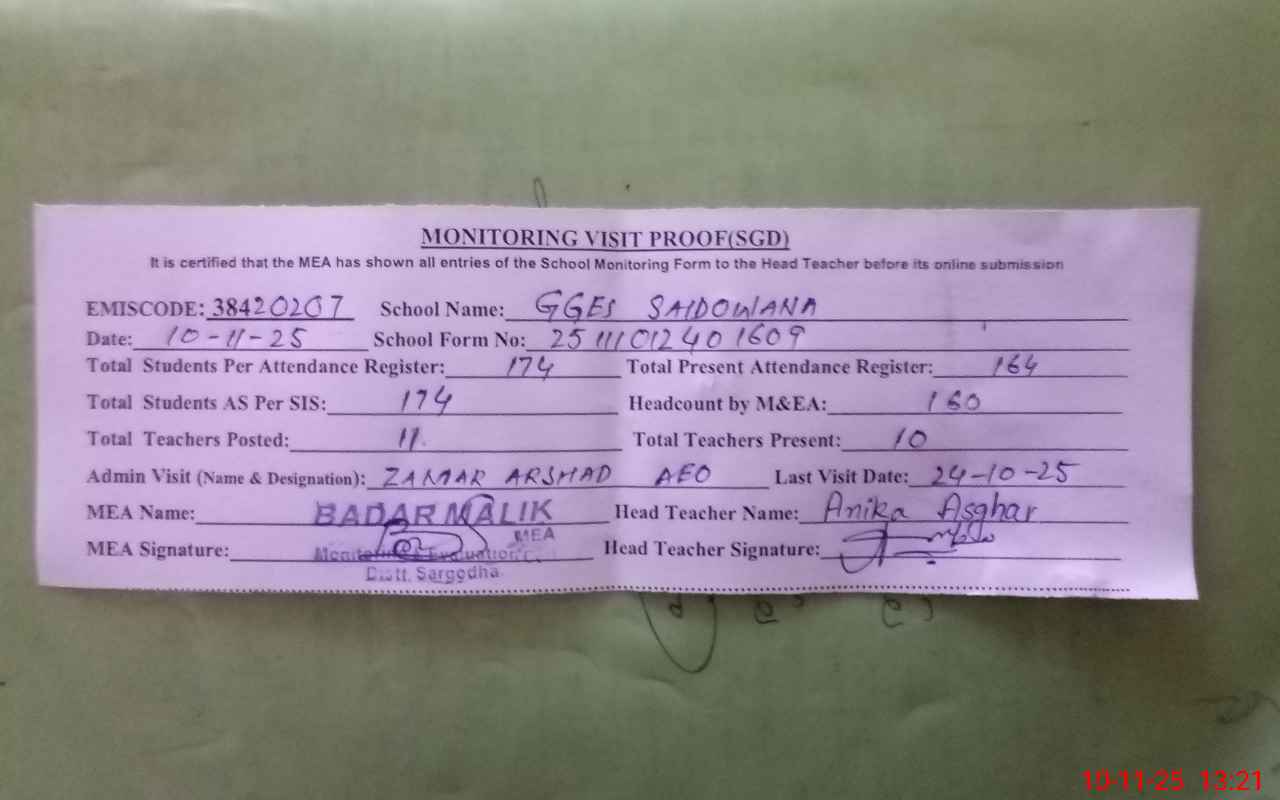 MONITORING VISIT PROOF(SGD)
It is certified that the MEA has shown all entries of the School Monitoring Form to the Head Teacher before its online submission
EMISCODE: 38420207 School Name: GGES SAIDOWANA
Date: 10-11-25 School Form No: 25111012401609
Total Students Per Attendance Register: 174 Total Present Attendance Register: 164
Total Students AS Per SIS: 174 Headcount by M&EA: 160
Total Teachers Posted: 11 Total Teachers Present: 10
Admin Visit (Name & Designation): ZAMAR ARSHAD AEO Last Visit Date: 24-10-25
MEA Name: BADAR MALIK Head Teacher Name: Anika Asghar
MEA
MEA Signature: Monitoring & Evaluation Head Teacher Signature:
Distt. Sargodha
10-11-25 13:21